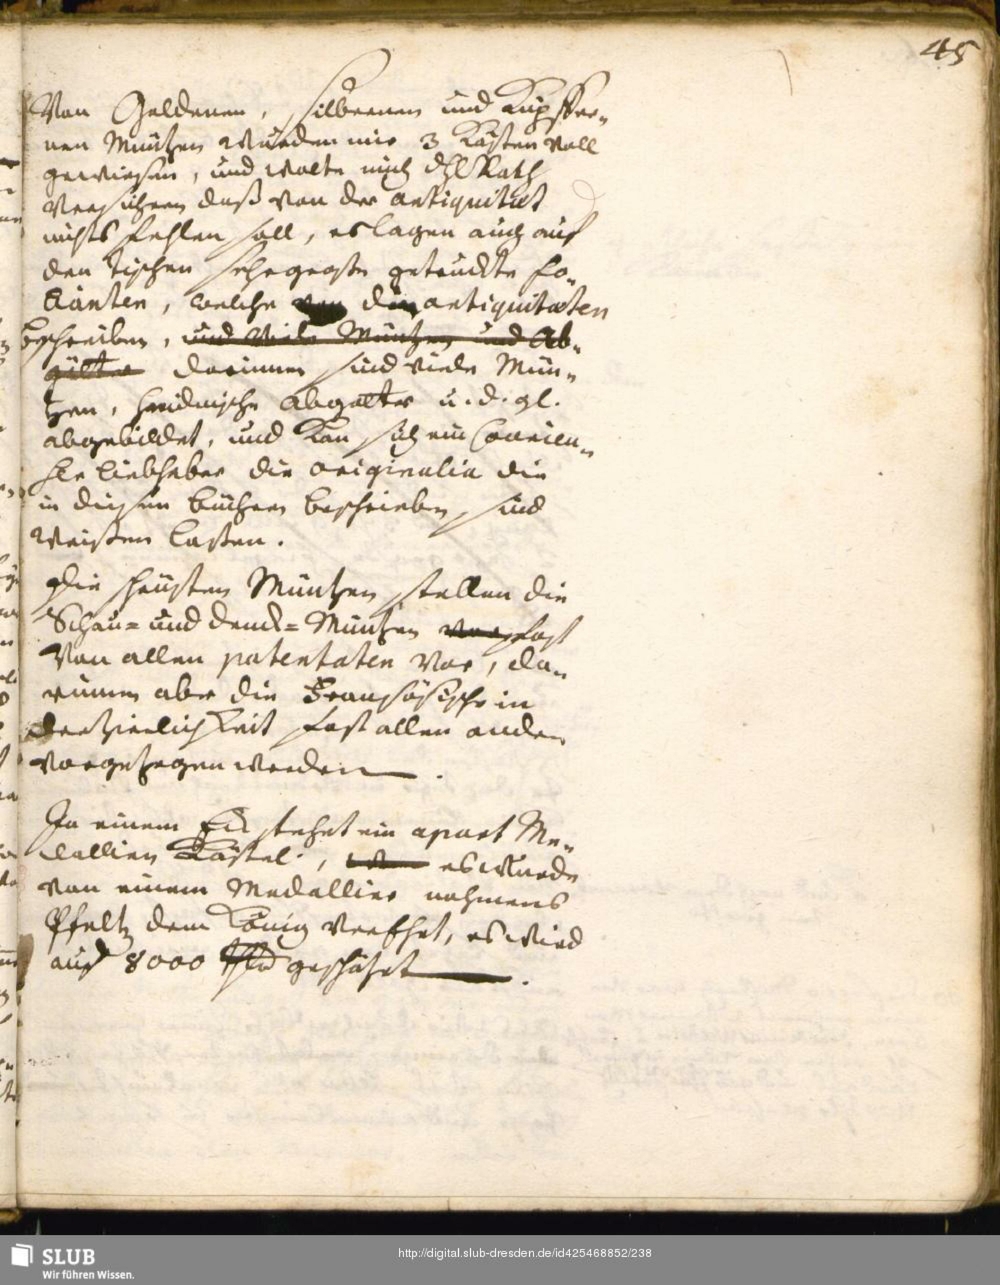 45
Von Goldenen, silbernen und Kupffer-
nen Müntzen wurden mir 3 Kästen voll
gewiesen, und wolte mich d H Rath
versichern daß von der antiquität
nichts fehlen soll, es lagen auch auf
den Tischen sehr große gedruckte fo-
lianten, welche von die antiquitæten
beschreiben, und viele Müntzen und Ab-
götter darinnen sind viele Mün-
tzen, heidnische Abgötter u. d. gl.
abgebildet, und Kan sich ein Courieu-
ser liebhaber die originalia die
in diesen büchern beschrieben, sind
weisen lassen.
Die heüsten Müntzen stellen die
Schau- und Denck- Müntzen fast
von allen potentaten vor, da-
runnen aber die Französische in
der Zierlichkeit fast allen andern
vorgezogen werden.
In einem Eck stehet ein apart Me-
dallien Kästel, es wurde
von einem Medallier nahmens
Pfeltz dem König verehrt, es wird
auf 8000 geschätzet.
SLUB
Wir führen Wissen.
http://digital.slub-dresden.de/id425468852/238